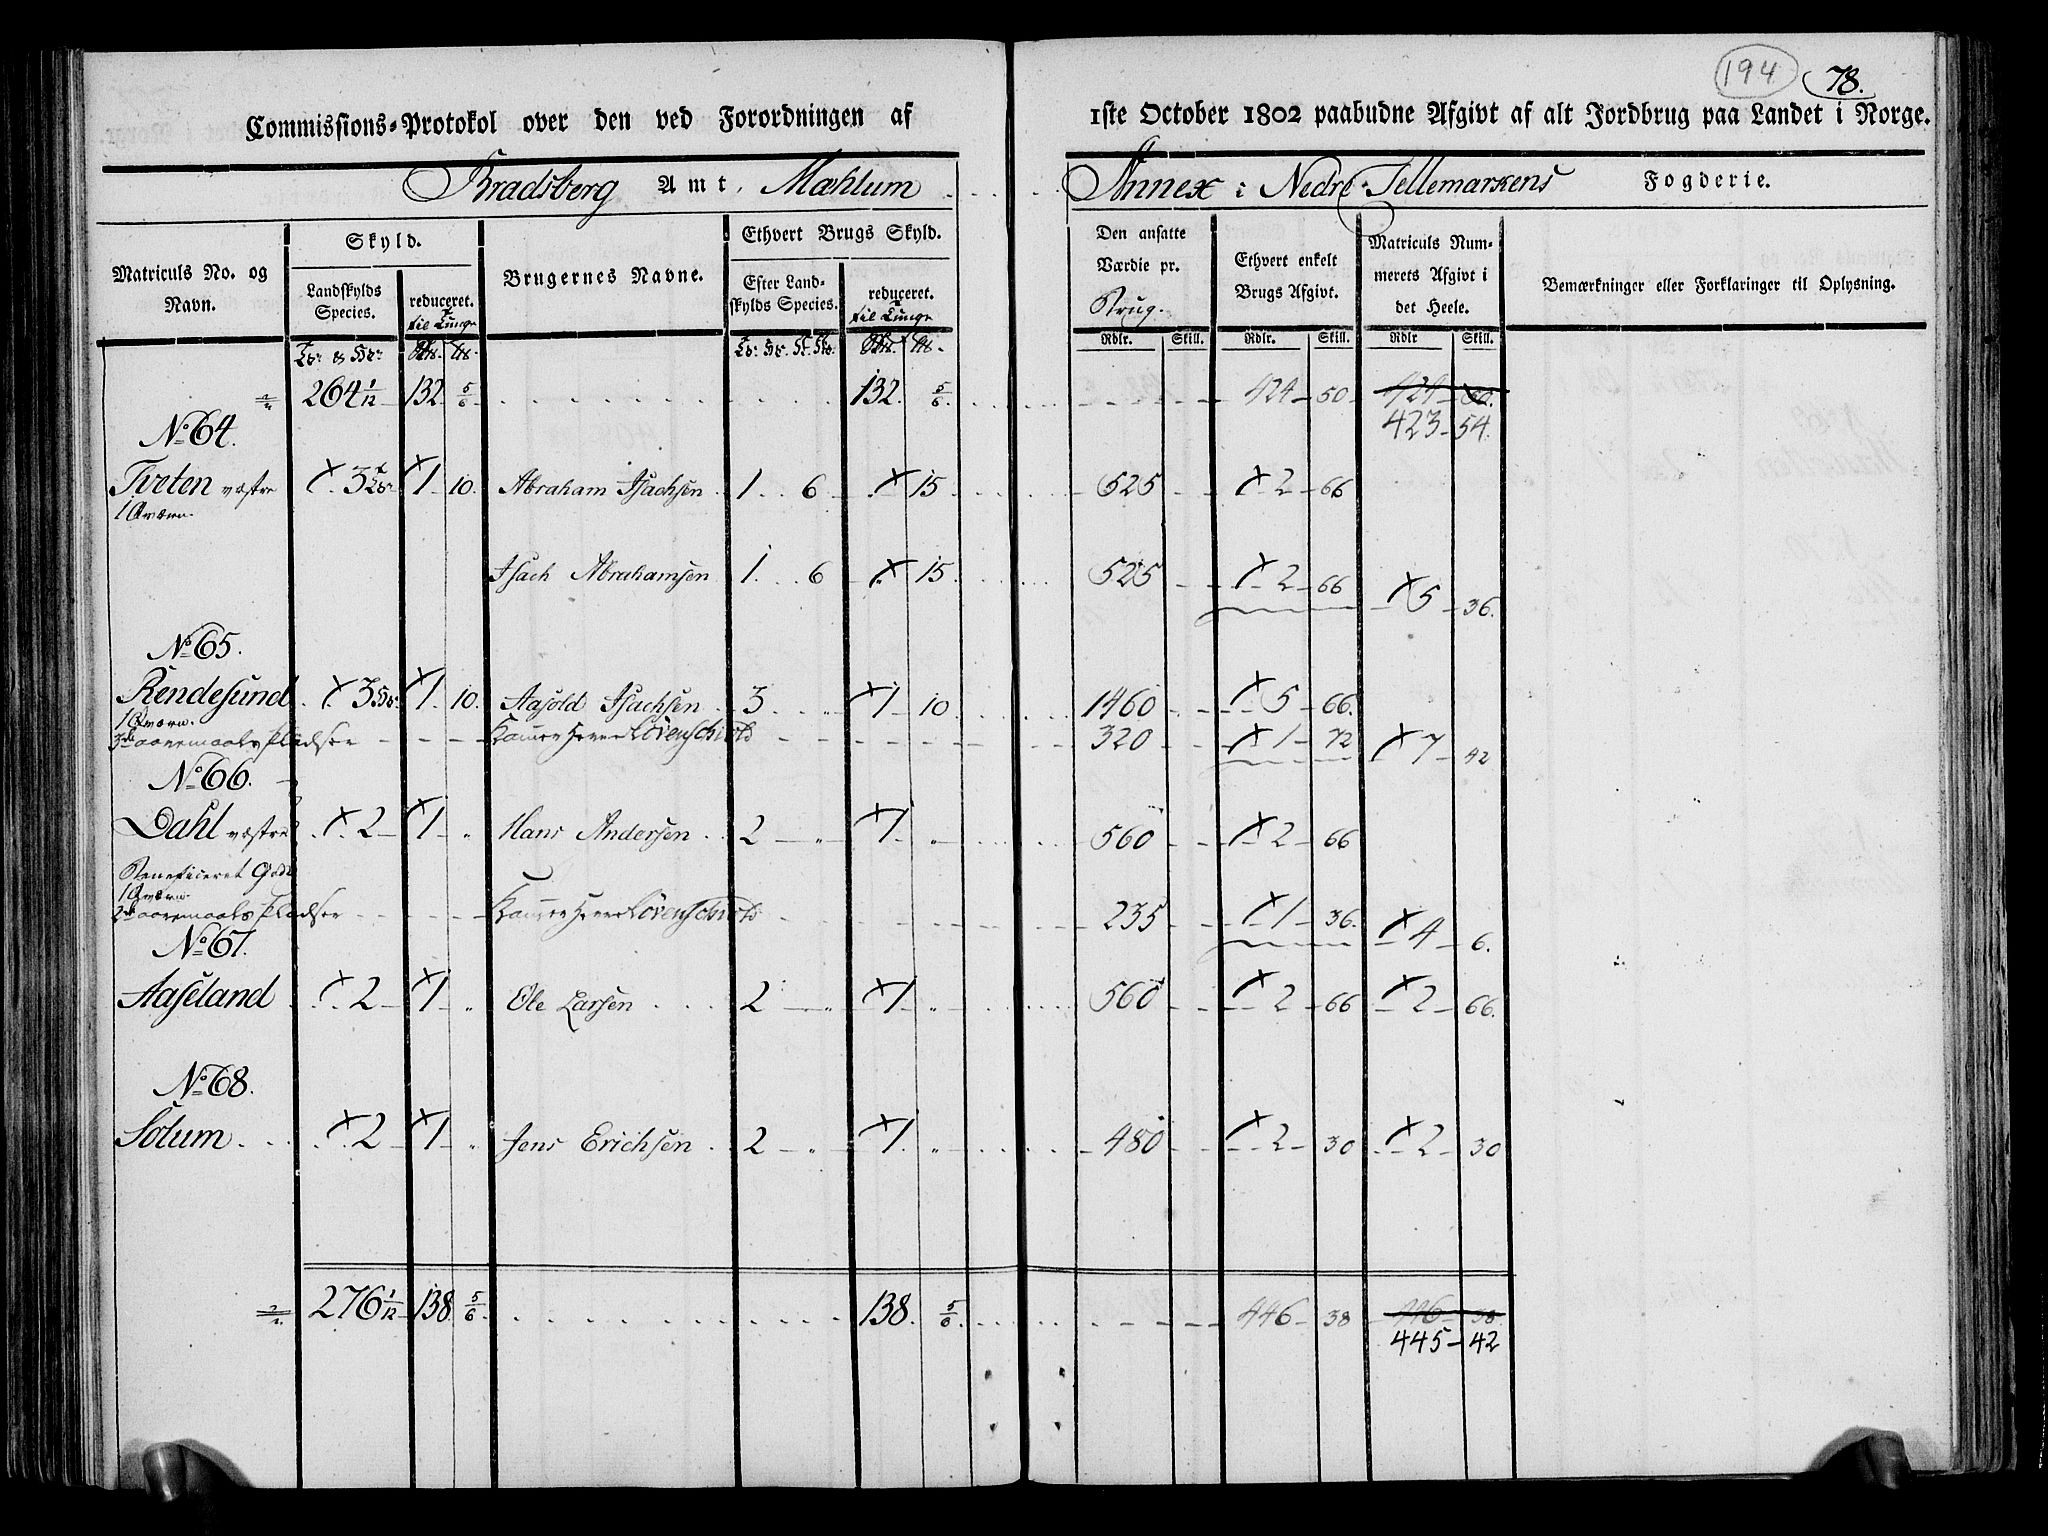 194 78.
Commissions-Protokol over den ved Forordningen af 1ste October 1802 paabudne Afgivt af alt Jordbrug paa Landet i Norge.
Bradsberg Amt, Mæhlum Annex i Nedre Tellemarkens Fogderie.
Matriculs No. og Navn. Skyld. Brugernes Navne. Ethvert Brugs Skyld. Den ansatte Værdie pr. Brug. Ethvert enkelt Brugs Afgivt. Matriculs Nummerets Afgivt i det Heele. Bemærkninger eller Forklaringer til Oplysning.
Landskylds Species. reduceret. til Tunge Efter Landskylds Species. reduceret. til Tunge
Rdlr. Skill. Rdlr. Skill. Rdlr Skill.
264 1/12 132 5/6 132. 5/6. 424 50 424 50.
423 54.
No 64.
Tveten væstre 3 1 10. Abraham Isachsen 1 6 15 525 2 66
1 Qværn.
Isach Abrahamsen 1 6 15 525 2 66 5 36.
No 65.
Rendesund 3 1 10. Aasold Isachsen 3 1 10 1460 5 66.
1 Qværn.
Pladser Løvenschiold 320 1 72 7 42
No 66.
Dahl væstre 2 1 " Hans Andersen 2 " 1 " 560 2 66
Beneficeret Gods
1 Qværn.
Pladser Løvenschiold 235 1 36. 4 6.
No 67.
Aaseland 2 1 " Ole Larsen 2 " 1 " 560 2 66 2 66.
No 68.
Solum 2 1 " Jens Erichsen 2 " 1 " 480 2 30 2 30
276 1/12 138 5/6 138. 5/6. 446 38 446 38.
445 42